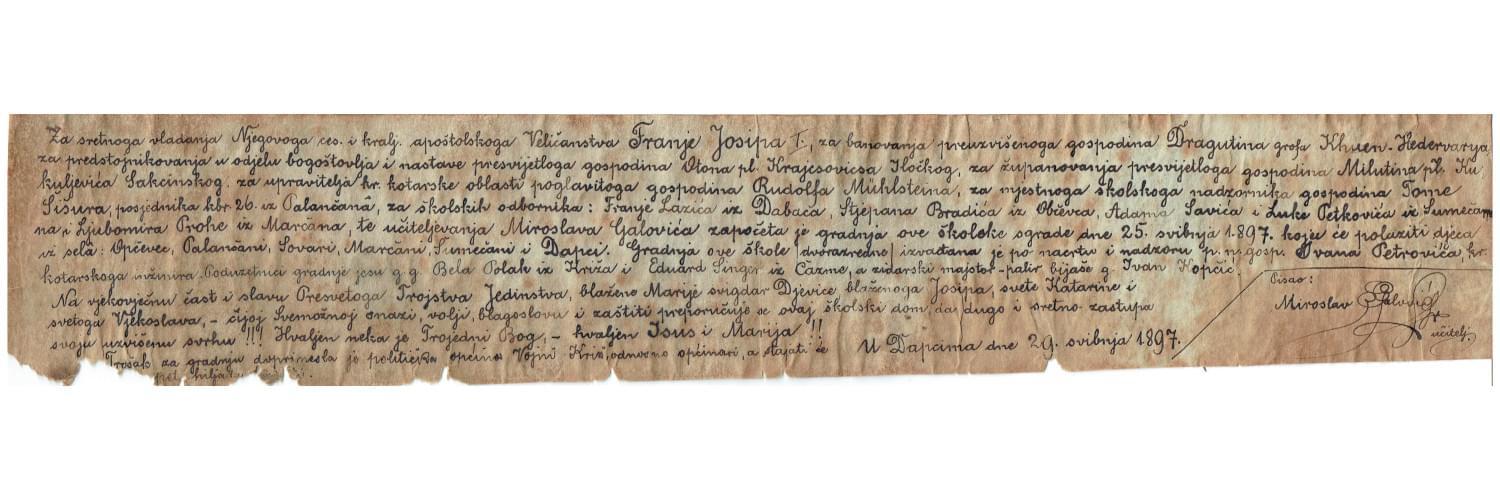 Za sretnoga vladanja Njegovoga ces. i kralj. apoštolskoga Veličanstva Franje Josipa I., za banovanja preuzvišenoga gospodina Dragutina grofa Khuen-Hedervarya,
za predstojnikovanja u odjelu bogoštovlja i nastave presvijetloga gospodina Otona pl. Krajcsovicsa Iločkog, za županovanja presvijetloga gospodina Milutina pl. Ku
kuljevića Sakcinskog. za upravitelja kr. kotarske oblasti poglavitoga gospodina Rudolfa Mühlsteina, za mjestnoga školskoga nadzornika gospodina Tome
Šišura, posjednika kbr. 26. iz Palančanâ, za školskih odbornika: Franje Lazića iz Dabaca, Stjepana Bradića iz Obćevca, Adama Savića i Luke Petkovića iz Šumećam
na, i Ljubomira Prohe iz Marčana, te učiteljevanja Miroslava Galovića započeta je gradnja ove školske sgrade dne 25. svibnja 1897. koju će polaziti djeca
iz selâ: Opčevec, Palančani, Šovari, Marčani, Šumećani i Dapci. Gradnja ove škole /dvorazredne/ izvađana je po nacrtu i nadzoru p. n. gosp. Ivana Petrovića, kr.
kotarskoga inžinira. Poduzetnici gradnje jesu g. g. Bela Polak iz Križa i Eduard Singer iz Čazme, a zidarski majstor-palir bijaše g. Ivan Kopčić.
Na vjekovječnu čast i slavu Presvetoga Trojstva Jedinstva, blažene Marije svigdar Djevice blaženoga Josipa, svete Katarine i
svetoga Vjekoslava, - čijoj Svemožnoj snazi, volji, blagoslovu i zaštiti preporučuje se ovaj školski dom, da dugo i sretno zastupa
svoju uzvišenu svrhu!!! Hvaljen neka je Trojedni Bog, - hvaljen Isus i Marija!!
Trošak za gradnju doprinesla je politička općina Vojni Križ, odnosno općinari, a stajati će
U Dapcima dne 29. svibnja 1897.
Pisao:
Miroslav Galović
učitelj.